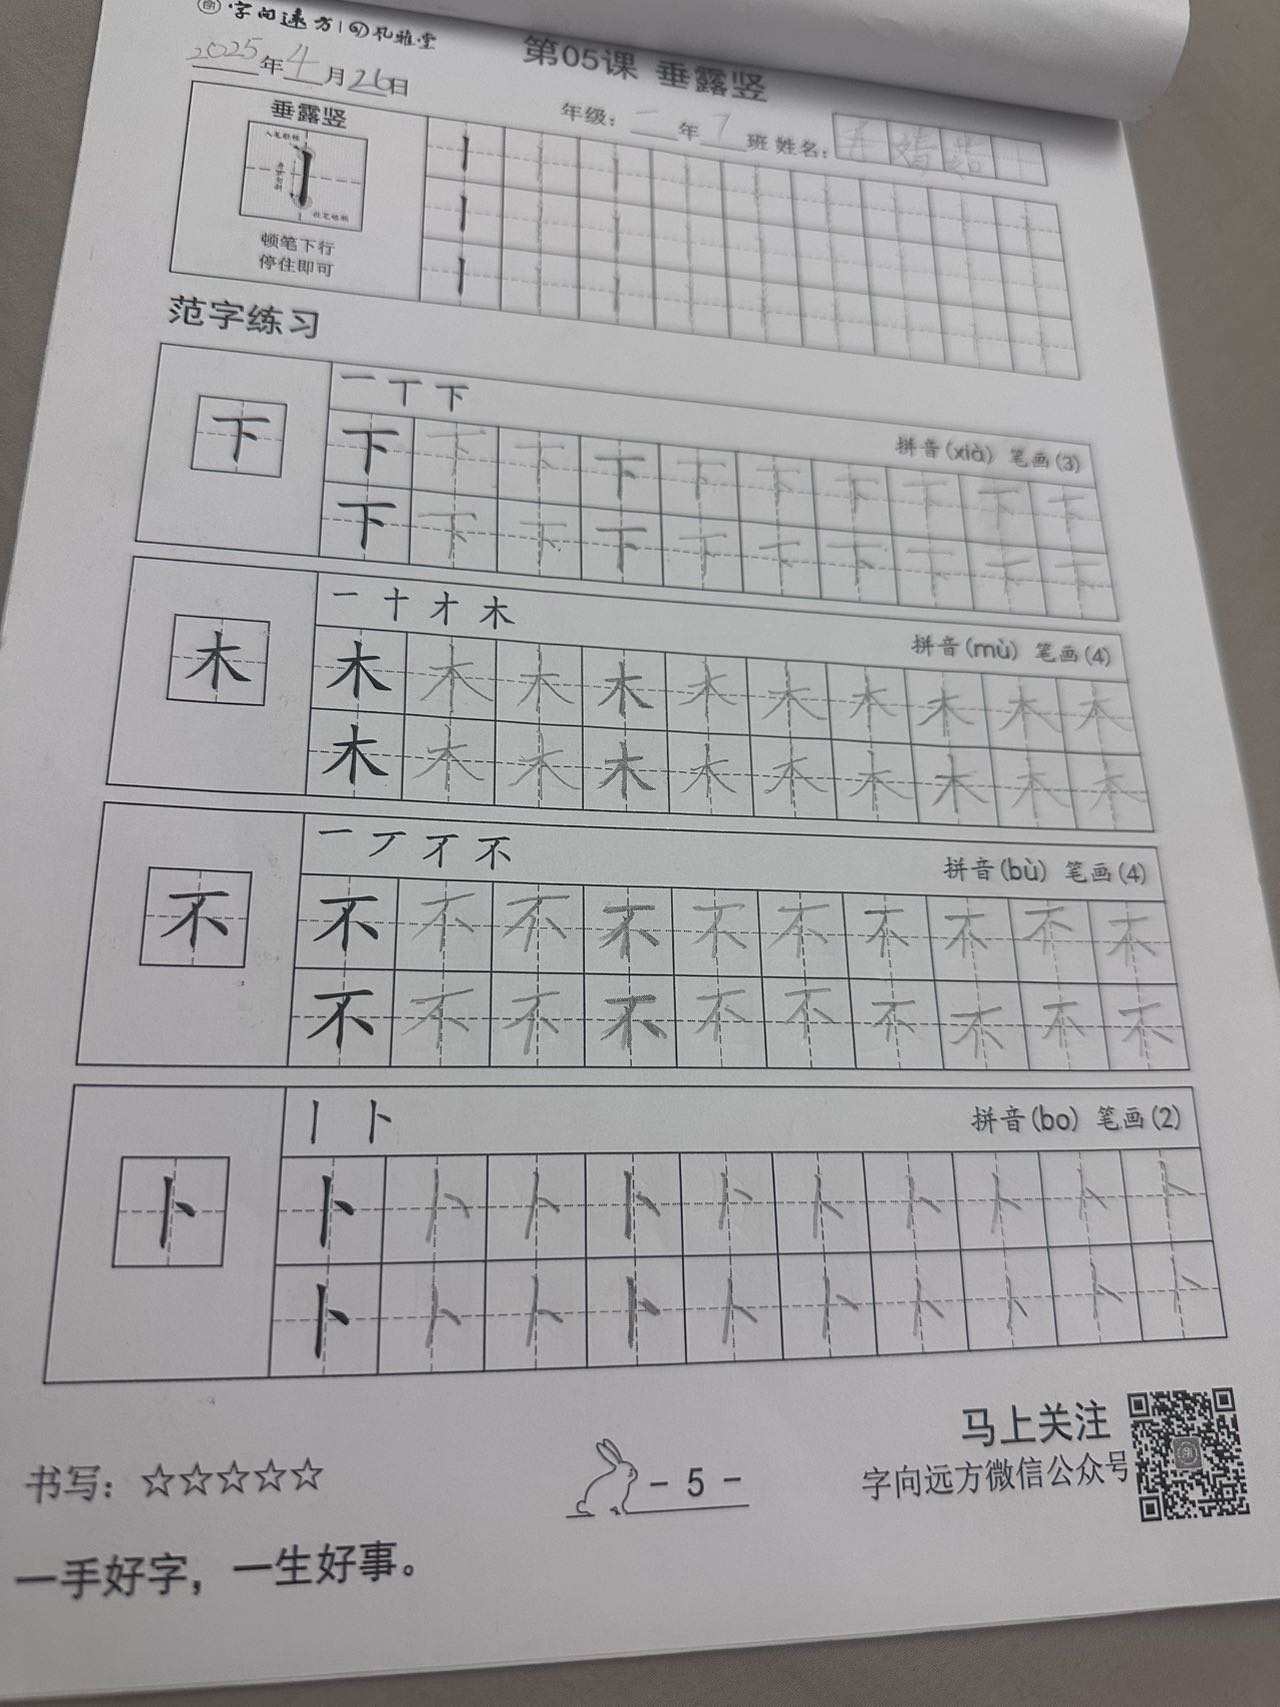 字向远方 风雅堂
第05课 垂露竖
2025年4月26日
年级：二年7班 姓名：
垂露竖
顿笔下行
停住即可
范字练习
一丅下
拼音(xià) 笔画(3)
下 下 下 下 下 下 下 下 下 下 下
下 下 下 下 下 下 下 下 下 下
一十才木
拼音(mù) 笔画(4)
木 木 木 木 木 木 木 木 木 木 木
木 木 木 木 木 木 木 木 木 木
一丆不不
拼音(bù) 笔画(4)
不 不 不 不 不 不 不 不 不 不 不
不 不 不 不 不 不 不 不 不 不
丨卜
拼音(bo) 笔画(2)
卜 卜 卜 卜 卜 卜 卜 卜 卜 卜 卜
卜 卜 卜 卜 卜 卜 卜 卜 卜 卜
马上关注
字向远方微信公众号
书写：☆☆☆☆☆
- 5 -
一手好字，一生好事。